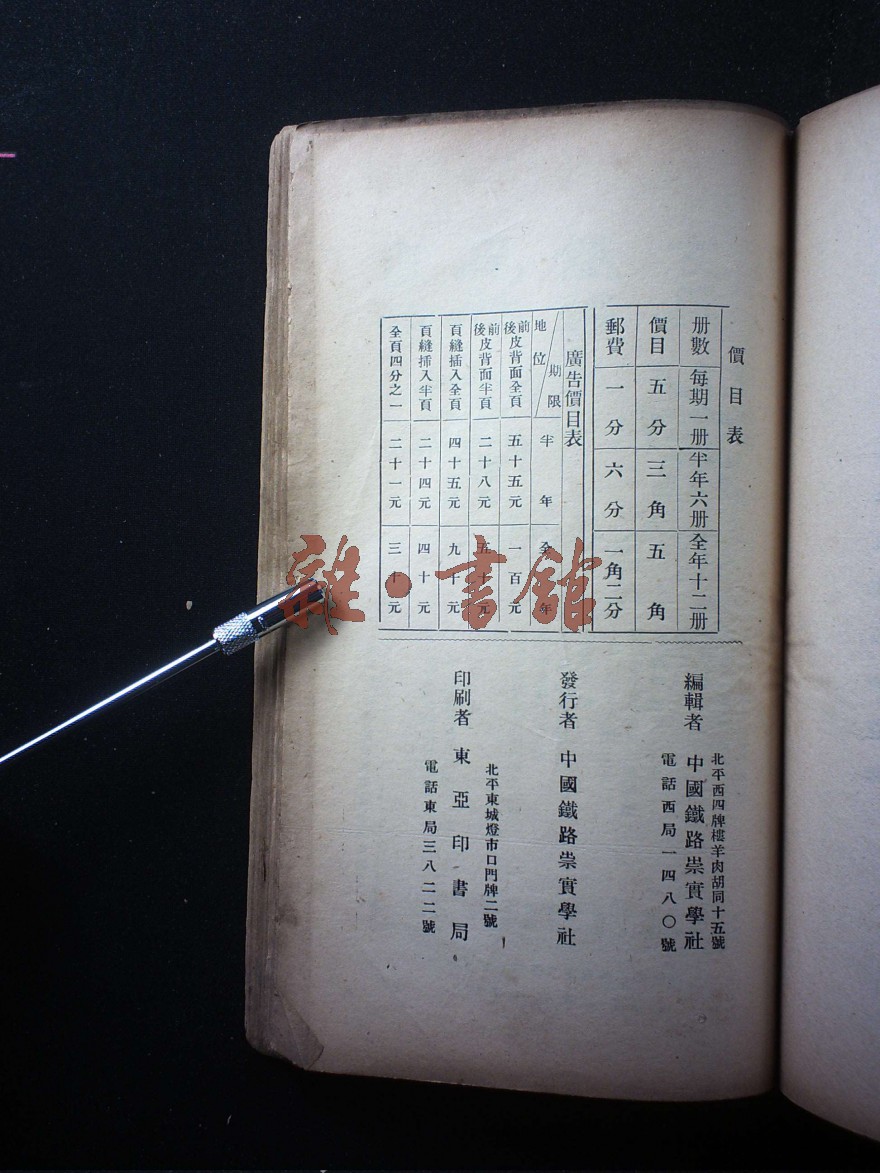 價目表
册數 每期一册 半年六册 全年十二册
價目 五分 三角 五角
郵費 一分 六分 一角二分
廣告價目表
期限
地位 半年 全年
前後皮背面全頁 五十五元 一百元
前後皮背面半頁 二十八元 五十元
頁縫插入全頁 四十五元 九十元
頁縫插入半頁 二十四元 四十元
全頁四分之一 二十一元 三十元
北平西四牌樓羊肉胡同十五號
編輯者 中國鐵路崇實學社
電話西局一四八〇號
發行者 中國鐵路崇實學社
北平東城燈市口門牌二號
印刷者 東亞印書局
電話東局三八二二號
雜·書館